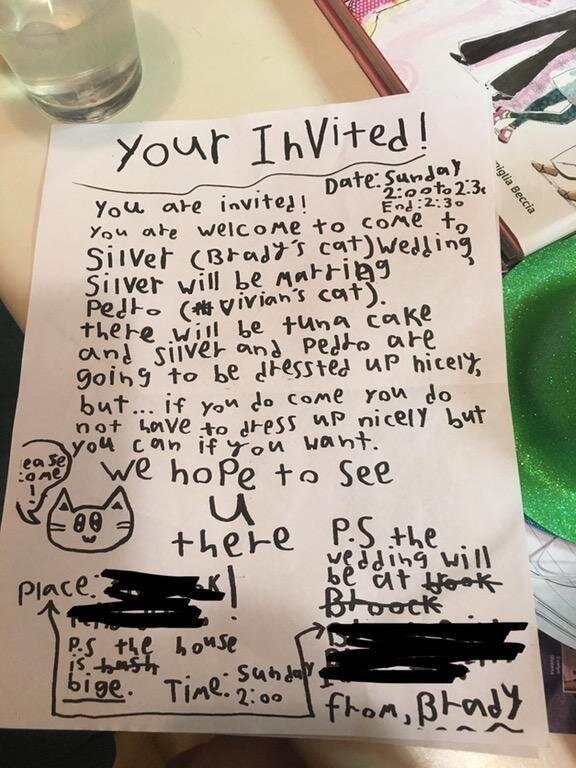 YOUR INVITED!
Date: Sunday
2:00 to 2:3
End: 2:30
You are invited!
You are welcome to come to
Silver (Brady's cat) Wedding,
Silver will be marring
Pedro (Vivian's cat).
there will be tuna cake
and silver and Pedro are
going to be dressted up nicely,
but... if you do come you do
not have to dress up nicely but
you can if you want.
ease
ome
!
We hope to see
u
there
P.S the
wedding will
be at
Bloock
Place: !
P.S the house
is
bige.
Time: Sunday
2:00
from, Brady
iglia Beccia